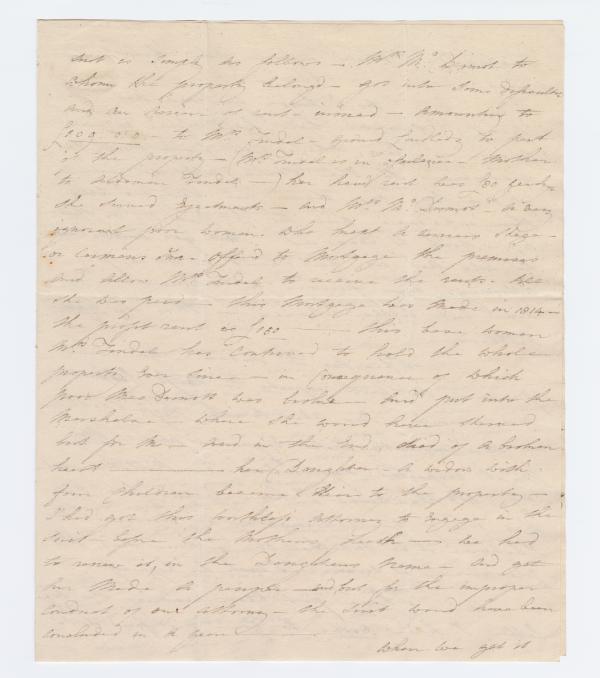 suit is simple as follows - Mrs. Mc. Dermot to
whom the property belonged - got into some difficulties
and an arrear of rent incurred - amounting to
to Mrs Tindal - ground Landlady to part
of the property - (Mrs Tindal is in opulence - Mother
to Alderman Tindal -) her head rent was £30 yearly
she served Ejectments - and Mrs Mc Dermot - a very
ignorant poor woman who kept a
or Carmans Inn - offered to Mortgage the premises
and allow Mrs Tindal to receive the rents - till
she was paid - this Mortgage was made in 1814 -
the profit rent - this woman
Mrs Tindal has Continued to hold the whole
property ever since - in Consequence of which
poor Mrs Dermott was broke - and put into the
Marshalsea - where she would have starved
but for Me - and in the End died of a broken
heart - her Daughter - a widow with
four Children became Heir to the property -
I had got this worthless attorney to Engage in the
suit before the Mothers death - we had
to renew it, in the Daughters Name - and got
her Made a pauper - and but for the improper
Conduct of our attorney - the Suit would have been
Concluded in a year
When we got it